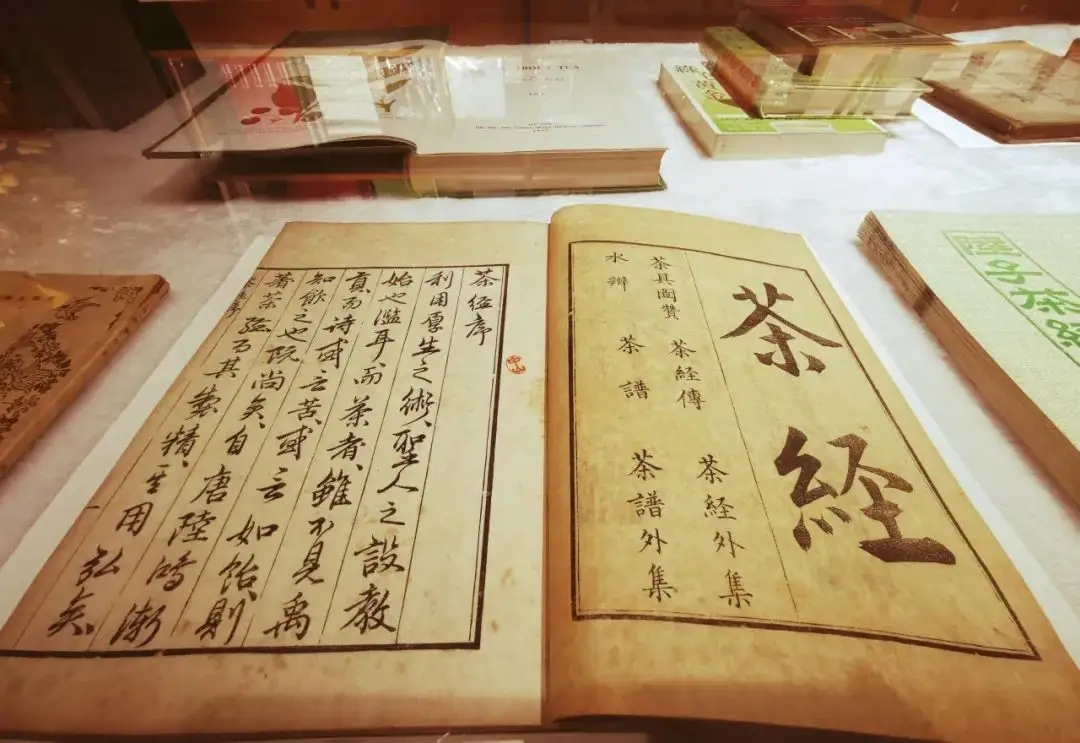 茶経
茶具啚賛 茶経傳 茶経外集
水辨 茶譜 茶譜外集
茶経序
利用厚生之術聖人之設教
始也濫耳而茶者雖不見禹
貢而詩或云苦或云如飴則
知飲之也既尚矣自唐陸鴻漸
著茶経而其藝精其用弘矣
TEA
綠色黃金
陸子茶經